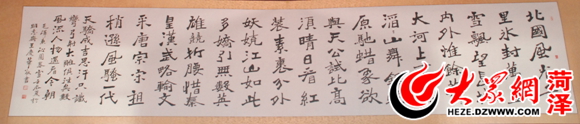 北國風光
里冰封萬
雪飄望長
内外惟餘莽
大河上下
滔山舞銀
原馳蠟象欲
與天公試比高
須晴日看紅
裝素裹分外
妖嬈江山如此
多嬌引無數英
雄競折腰惜秦
皇漢武略輸文
采唐宗宋祖
稍遜風騷一代
天驕成吉思汗只識
彎弓射大雕俱往矣數
風流人物還看今朝
大眾網 菏泽
HEZE.DZWWW.COM